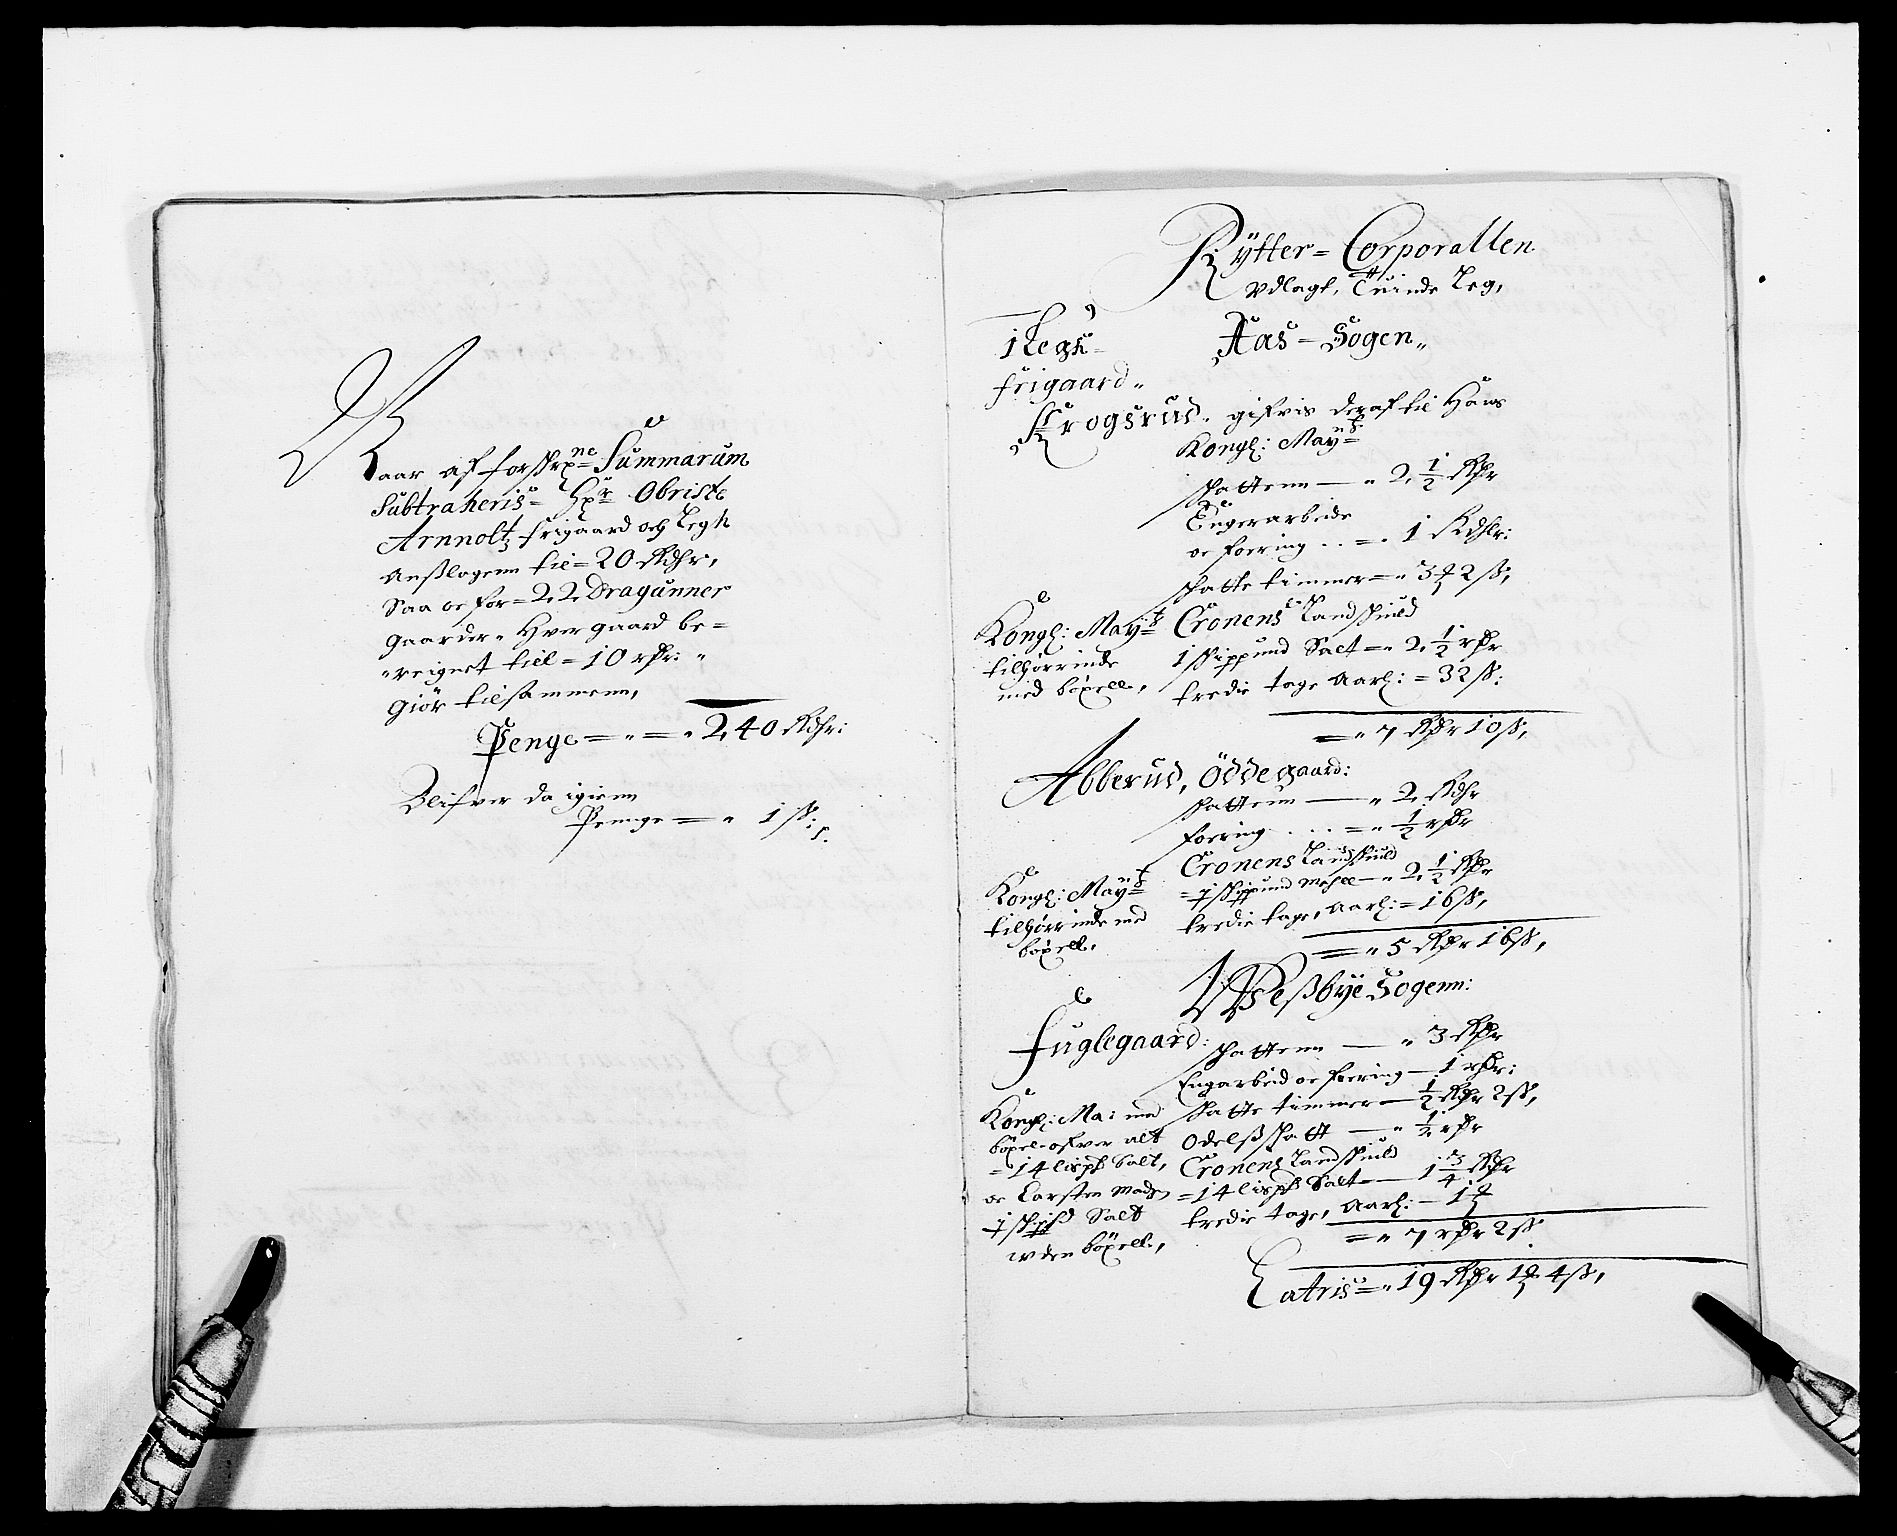 Naar af forskrne Summarum
Subtraheris Hr Obriste
Arnnoltz frigaard och Legh
Anslagenn til = 20 Rdhr,
Saa oc for = 22 Dragunner
gaarder, Hver gaard be=
reignet till = 10 rdr:
Giör tilsammenn,
Penge = 240 Rdhr:
Blifver da igienn
Penge = 1 ß:
Rytter = Corporallen
Udlagt, Tuinde Leg,
1 Legh
Aas = Sogen
frigaard
Krogsrud. gifvis deraf til Hans
Kongl: Mayts
skattenn — 2 1/2 Rdr
Engerarbeide
oc foering = 1 Rdhlr:
skatte timmer = 3 ort 2 ß,
Kongl: Mayts
tilhörrinde
med böxell,
Cronens Landskuld
1 skippund Salt = 2 1/2 rdr
tredie tage Aarl: = 32 ß:
= 7 Rdr 10 ß,
Abberud, Öddegaard:
skattenn — 2 Rdhr
foering = 1/2 rdr
Kongl: Mayts
tilhörrinde med
böxell,
Cronens Landskuld
= 1 skippund Mehll — 2 1/2 Rdr
tredie tage, Aarl: = 16 ß,
= 5 Rdr 16 ß,
Wessbye Sogenn:
Fuglegaard:
skattenn — 3 Rdr
Engarbeid oc foering — 1 rdr:
skatte timmer — 1/2 Rdr 2 ß,
Odelsskatt — 1/2 rdr
Kongl: Ma: med
böxel ofver alt
= 14 lispd Salt,
oc Carsten Mads
1 skipd Salt
uden böxell,
Cronens Landskuld
= 14 lispd Salt — 1 3/4 Rdr
tredie tage, Aarl: — 1 ort
= 7 rdr 2 ß
Latris = 19 Rdr 1 ort 4 ß,